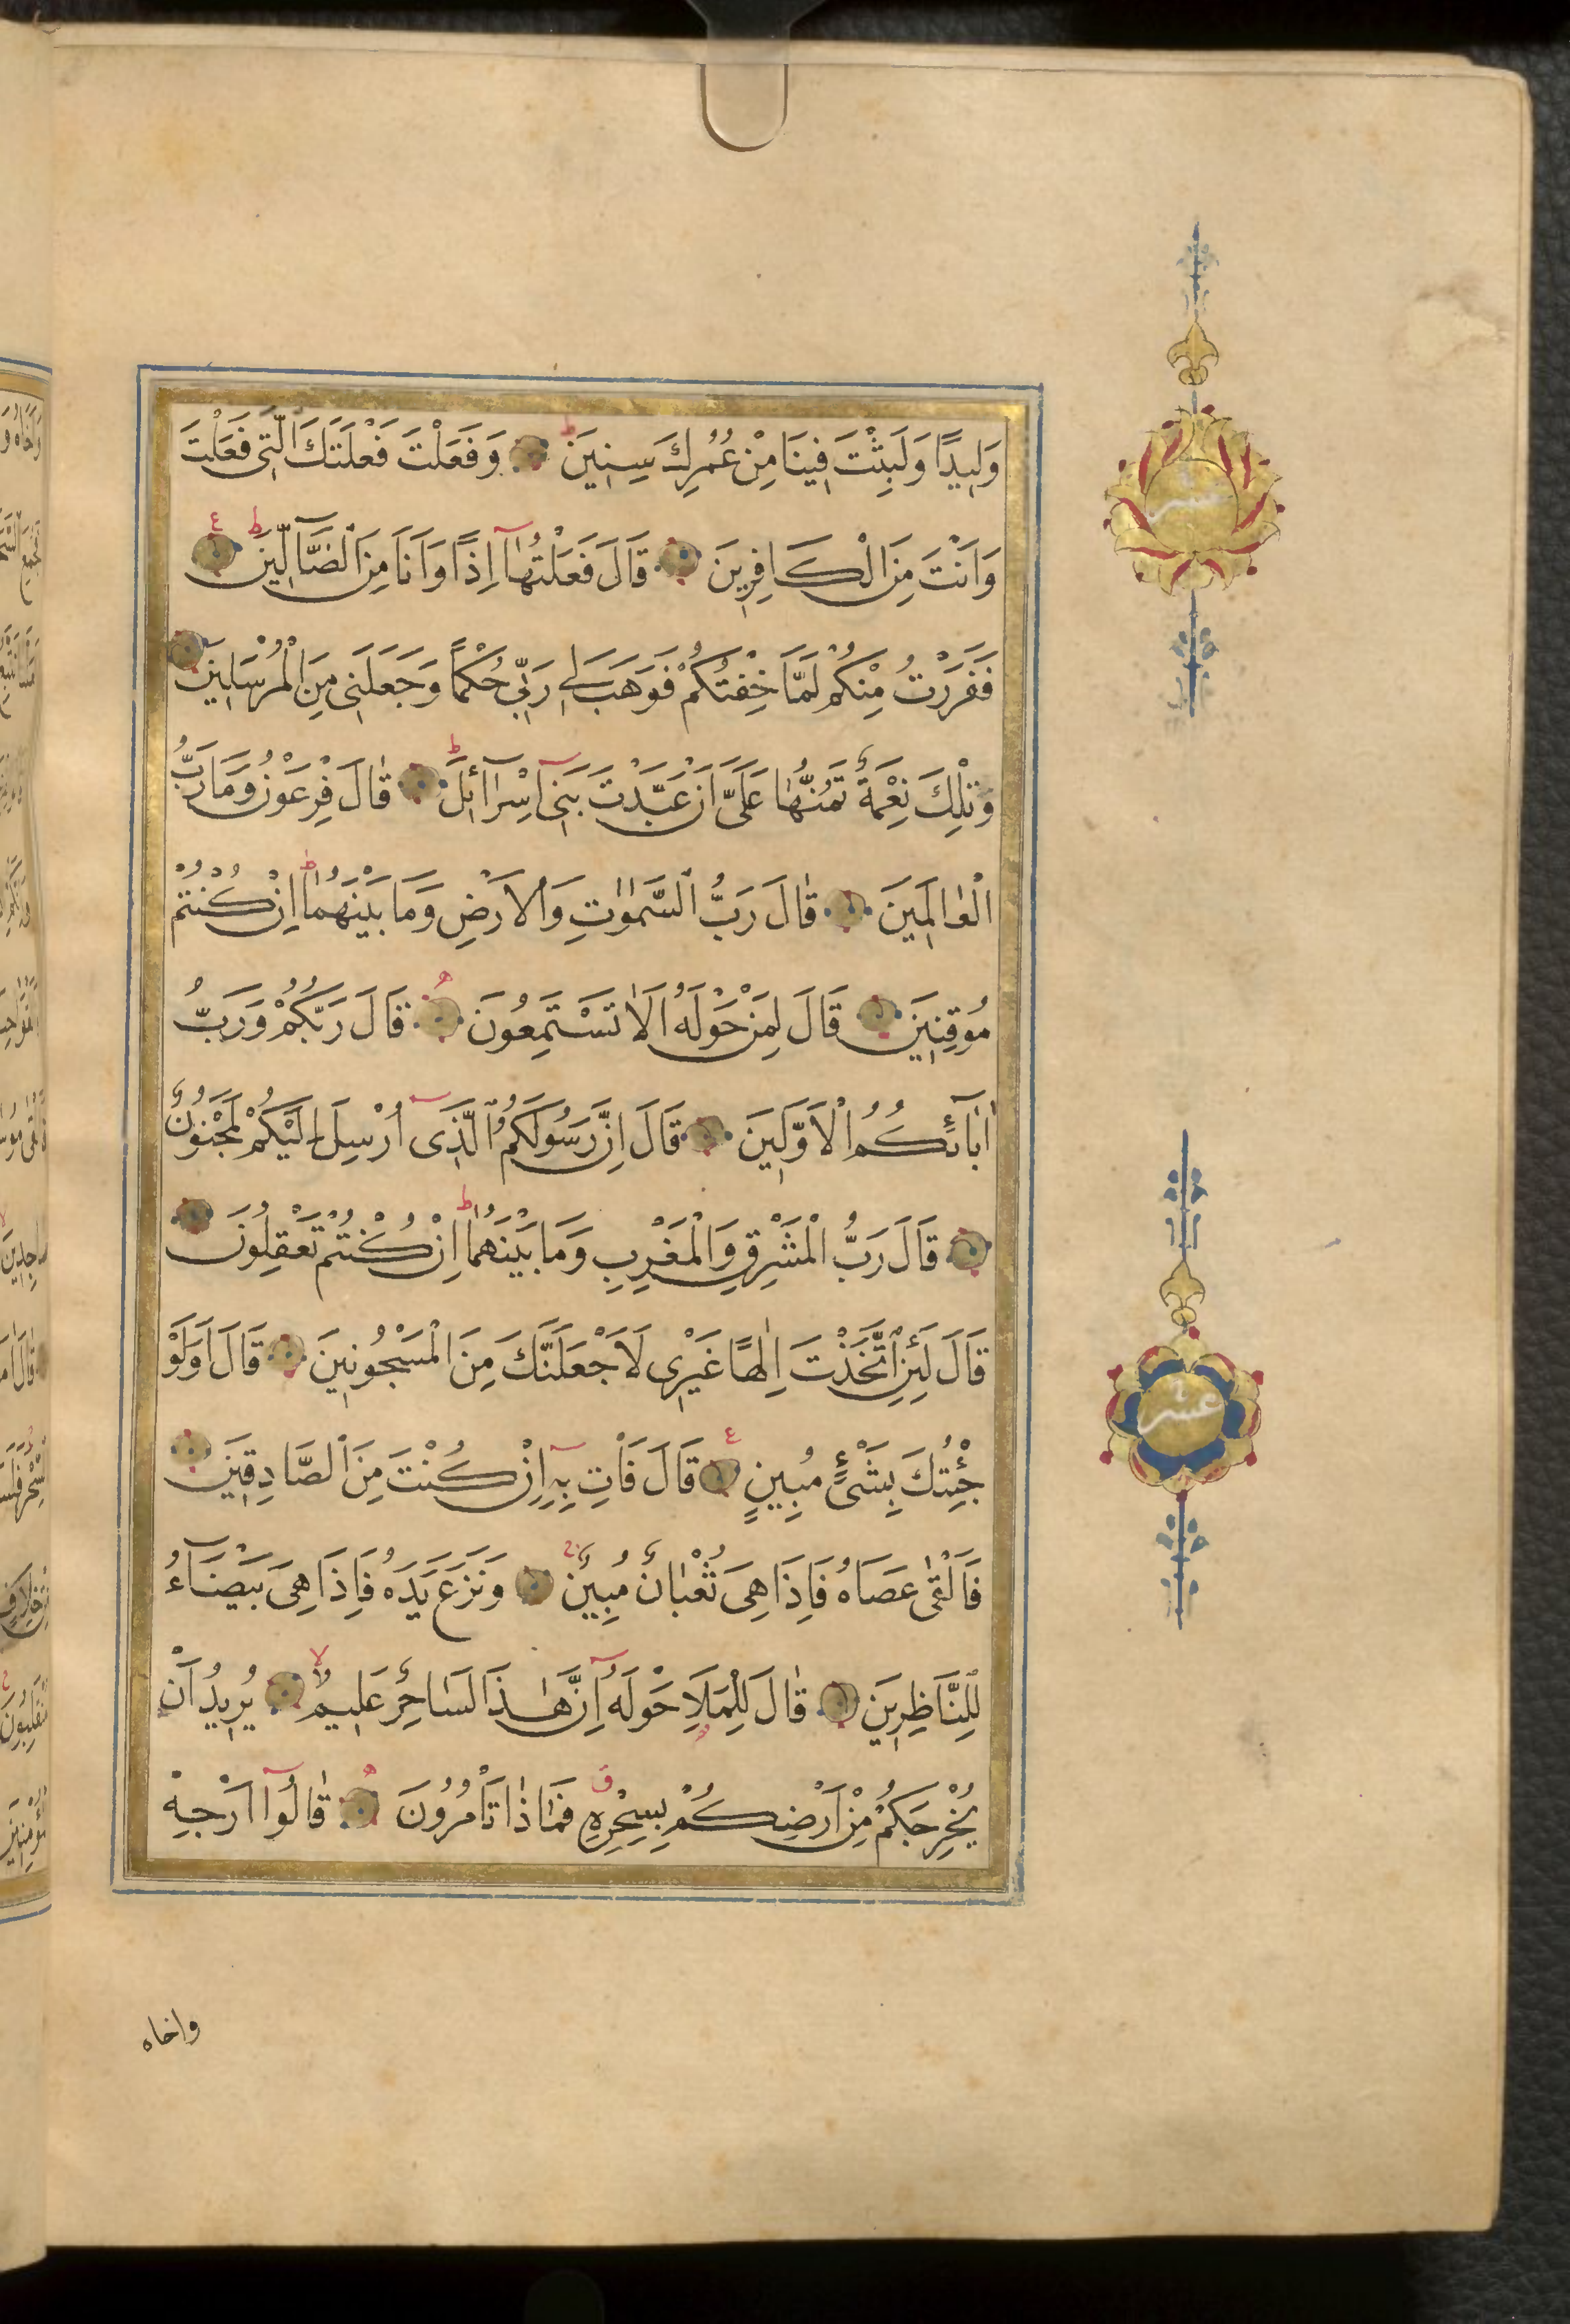 وَلِيدًا وَلَبِثْتَ فِينَا مِنْ عُمُرِكَ سِنِينَ ۝ وَفَعَلْتَ فَعْلَتَكَ الَّتِي فَعَلْتَ
وَاَنْتَ مِنَ الْكَافِرِينَ ۝ قَالَ فَعَلْتُهَٓا اِذًا وَاَنَا مِنَ الضَّٓالِّينَ ۝
فَفَرَرْتُ مِنْكُمْ لَمَّا خِفْتُكُمْ فَوَهَبَ لِي رَبِّي حُكْمًا وَجَعَلَنِي مِنَ الْمُرْسَلِينَ ۝
وَتِلْكَ نِعْمَةٌ تَمُنُّهَا عَلَيَّ اَنْ عَبَّدْتَ بَنِٓي اِسْرَٓائِلَ ۝ قَالَ فِرْعَوْنُ وَمَا رَبُّ
الْعَالَمِينَ ۝ قَالَ رَبُّ السَّمٰوَاتِ وَالْاَرْضِ وَمَا بَيْنَهُمَا اِنْ كُنْتُمْ
مُوقِنِينَ ۝ قَالَ لِمَنْ حَوْلَهُ اَلَا تَسْتَمِعُونَ ۝ قَالَ رَبُّكُمْ وَرَبُّ
اٰبَٓائِكُمُ الْاَوَّلِينَ ۝ قَالَ اِنَّ رَسُولَكُمُ الَّذِٓي اُرْسِلَ اِلَيْكُمْ لَمَجْنُونٌ
۝ قَالَ رَبُّ الْمَشْرِقِ وَالْمَغْرِبِ وَمَا بَيْنَهُمَا اِنْ كُنْتُمْ تَعْقِلُونَ ۝
قَالَ لَئِنِ اتَّخَذْتَ اِلٰهًا غَيْرِي لَاَجْعَلَنَّكَ مِنَ الْمَسْجُونِينَ ۝ قَالَ اَوَلَوْ
جِئْتُكَ بِشَيْءٍ مُبِينٍ ۝ قَالَ فَأْتِ بِهِٓ اِنْ كُنْتَ مِنَ الصَّادِقِينَ ۝
فَاَلْقٰى عَصَاهُ فَاِذَا هِيَ ثُعْبَانٌ مُبِينٌ ۝ وَنَزَعَ يَدَهُ فَاِذَا هِيَ بَيْضَٓاءُ
لِلنَّاظِرِينَ ۝ قَالَ لِلْمَلَاِ حَوْلَهُٓ اِنَّ هٰذَا لَسَاحِرٌ عَلِيمٌ ۝ يُرِيدُ اَنْ
يُخْرِجَكُمْ مِنْ اَرْضِكُمْ بِسِحْرِهِ فَمَاذَا تَأْمُرُونَ ۝ قَالُٓوا اَرْجِهْ
واخاه
عشر
عشر